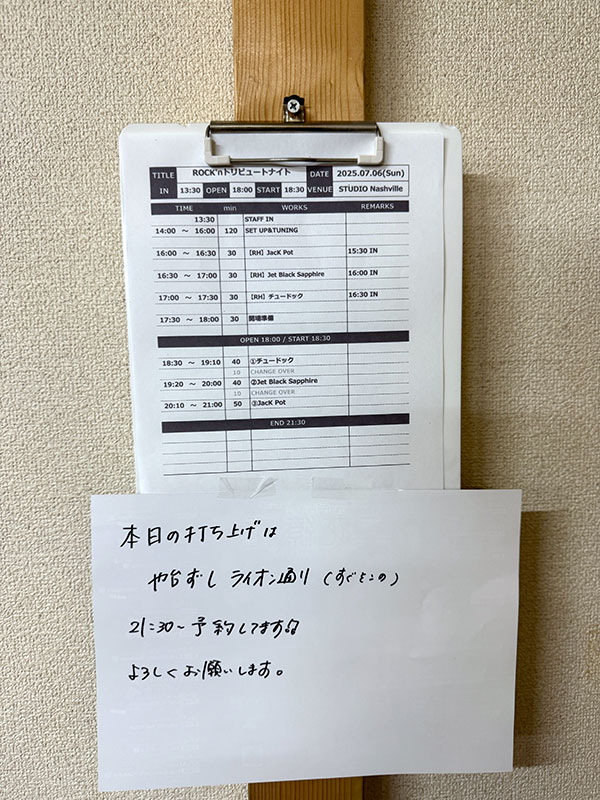 TITLE ROCK'nトリビュートナイト DATE 2025.07.06(Sun)
IN 13:30 OPEN 18:00 START 18:30 VENUE STUDIO Nashville
TIME min WORKS REMARKS
13:30 STAFF IN
14:00 ～ 16:00 120 SET UP&TUNING
16:00 ～ 16:30 30 [RH] JacK Pot 15:30 IN
16:30 ～ 17:00 30 [RH] Jet Black Sapphire 16:00 IN
17:00 ～ 17:30 30 [RH] チュードック 16:30 IN
17:30 ～ 18:00 30 開場準備
OPEN 18:00 / START 18:30
18:30 ～ 19:10 40 ①チュードック
10 CHANGE OVER
19:20 ～ 20:00 40 ②Jet Black Sapphire
10 CHANGE OVER
20:10 ～ 21:00 50 ③JacK Pot
END 21:30
本日の打ち上げは
や台ずし ライオン通り (すぐそこの)
21:30~ 予約してます
よろしくお願いします。